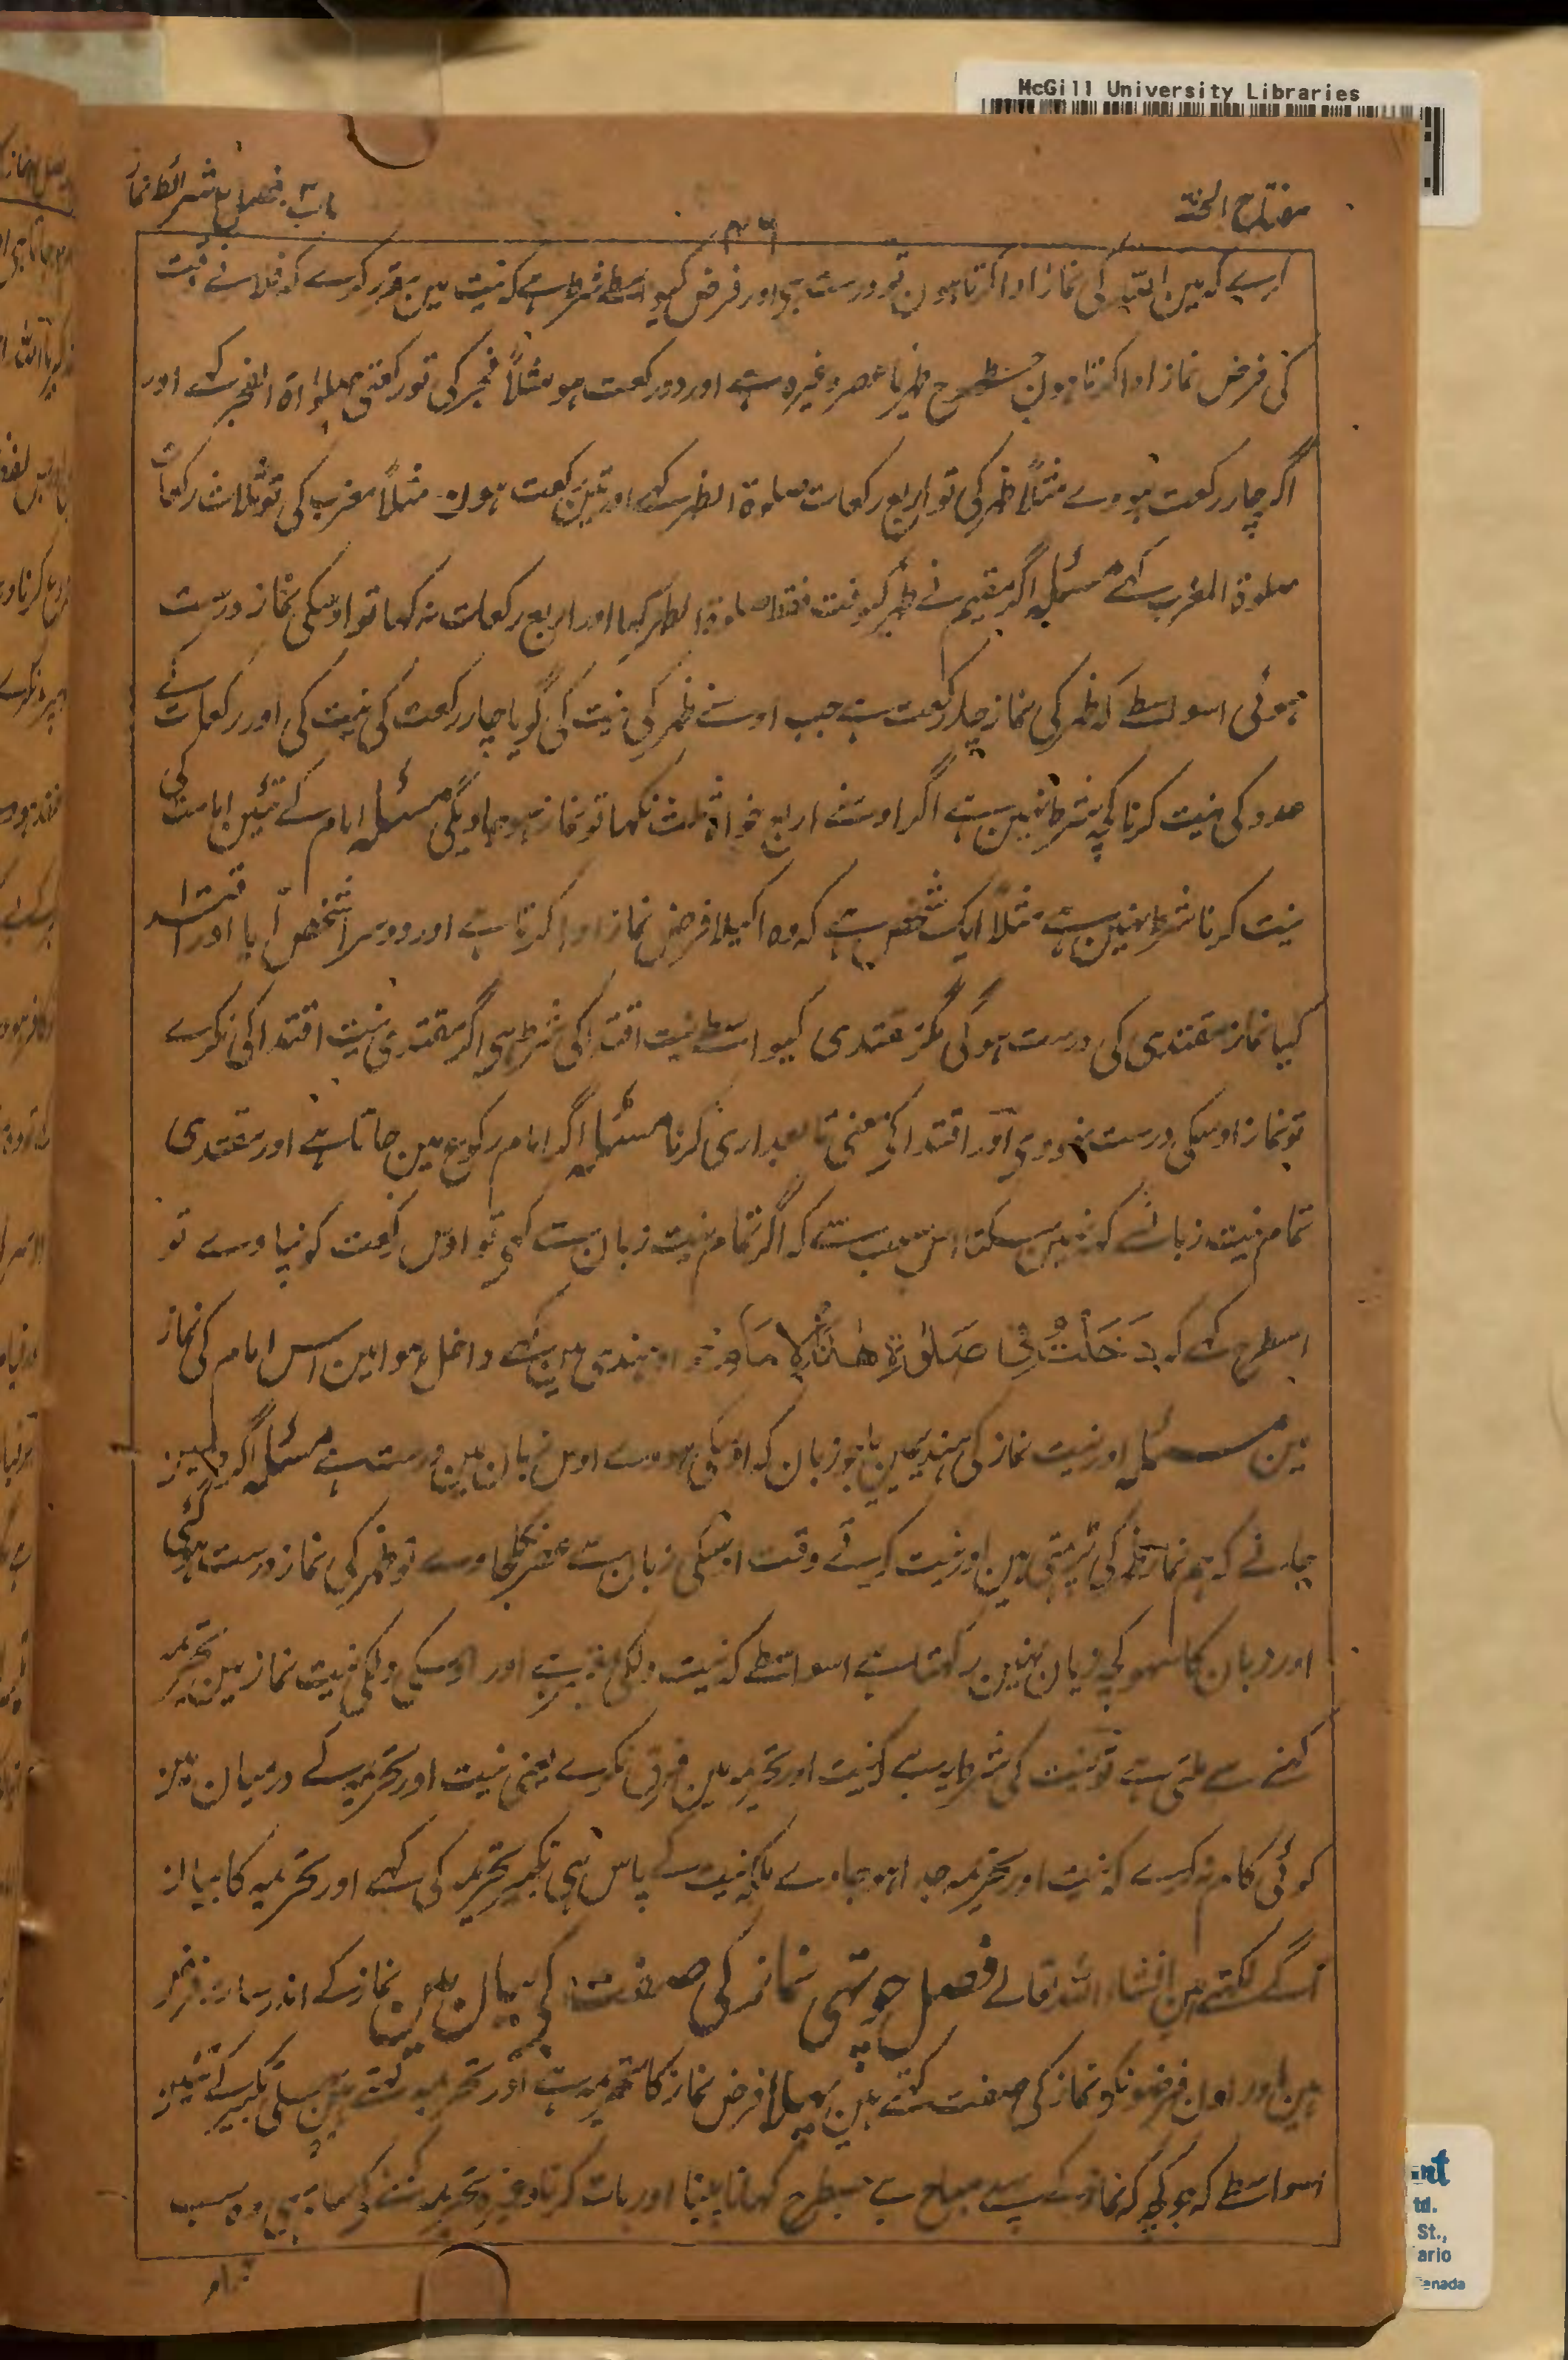 McGill University Libraries
مفتاح الجنة
باب ۳ فصل ۳ شرائط نماز
۳۶
کرے کہ مین اللہ کی نماز ادا کرتا ہون تو درست ہی اور فرض کیواسطے شرط ہے کہ نیت مین مقرر کرے کہ فلانے وقت
کی فرض نماز ادا کرتا ہون جسطرح ظہر یا عصر وغیرہ ہے اور دو رکعت ہو مثلاً فجر کی تو رکعتی صلوٰۃ الفجر کہے اور
اگر چار رکعت ہووے مثلاً ظہر کی تو اربع رکعات صلوۃ الظہر کہے اور تین رکعت ہون مثلاً مغرب کی تو ثلاث رکعات
صلوۃ المغرب کہے مسئلہ اگر مقیم نے ظہر کیوقت فقط صلوۃ الظہر کہا اور اربع رکعات نہ کہا تو اوسکی نماز درست
ہوئی اسواسطے کہ ظہر کی نماز چار رکعت ہے جب اوسنے ظہر کی نیت کی گویا چار رکعت کی نیت کی اور رکعات کے
عدد کی نیت کرنا کچھ شرط نہین ہے اگر اوسنے اربع خواہ ثلث نکہا تو نماز ہوجاویگی مسئلہ امام کے تئین امامت کی
نیت کرنا شرط نہین ہے مثلاً ایک شخص ہے کہ وہ اکیلا فرض نماز ادا کرتا ہے اور دوسرا شخص آیا اور اقتدا
کیا نماز مقتدی کی درست ہوگی مگر مقتدی کیواسطے نیت اقتدا کی شرط ہی اگر مقتدی نیت اقتدا کی نکرے
تو نماز اوسکی درست نہووی اور اقتدا کی معنی تابعداری کرنا مسئلہ اگر امام رکوع مین جاتا ہے اور مقتدی
تمام نیت زبانسے کہ نہین سکتا اس سبب سے کہ اگر تمام نیت زبان سے کہی تو اوس رکعت کو نپاوے تو
اسطرح کہے کہ دَخَلْتُ فِی صَلٰوۃِ ھٰذَا الْاِمَامِ اور ہندی مین کہے داخل ہوا مین اس امام کی نماز
مین مسئلہ اور نیت نماز کی ہندی مین یا جو زبان کہ اوسکی ہووے اوس زبان مین درست ہے مسئلہ اگر دلمین
جانے کہ ہم نماز ظہر کی پڑہتی ہین اور نیت کرتے وقت اسکی زبان سے عصر نکلجاوے تو ظہر کی نماز درست ہوگئی
اور زبان کا سہو کچھ زیان نہین رکہتا ہے اسواسطے کہ نیت دلکی معتبر ہے اور اوسکی دلکی نیت نماز مین تحریمہ
کہنے سے ملتی ہے تو نیت کی شرط یہ ہے کہ نیت اور تحریمہ مین فرق نکرے یعنی نیت اور تحریمہ کے درمیان مین
کوئی کام نہ کرے کہ نیت اور تحریمہ جدا ہوجاوے بلکہ نیت کے پاس ہی تکبیر تحریمہ کی کہے اور تحریمہ کا بیان
آگے لکہتے ہین انشاء اللہ تعالے فصل چوتہی نماز کی صفت کی بیان مین نماز کے اندر سات فرض
ہین اور اون فرضونکو نماز کی صفت کہتے ہین پہلا فرض نماز کا تحریمہ ہے اور تحریمہ کہتے ہین پہلی تکبیر کے تئین
اسواسطے کہ جو کچھ کہ نماز کے پہلے مباح ہے جسطرح کہانا پینا اور بات کرنا وغیرہ تحریمہ کہنے کے ساتہہ ہی وہ سب